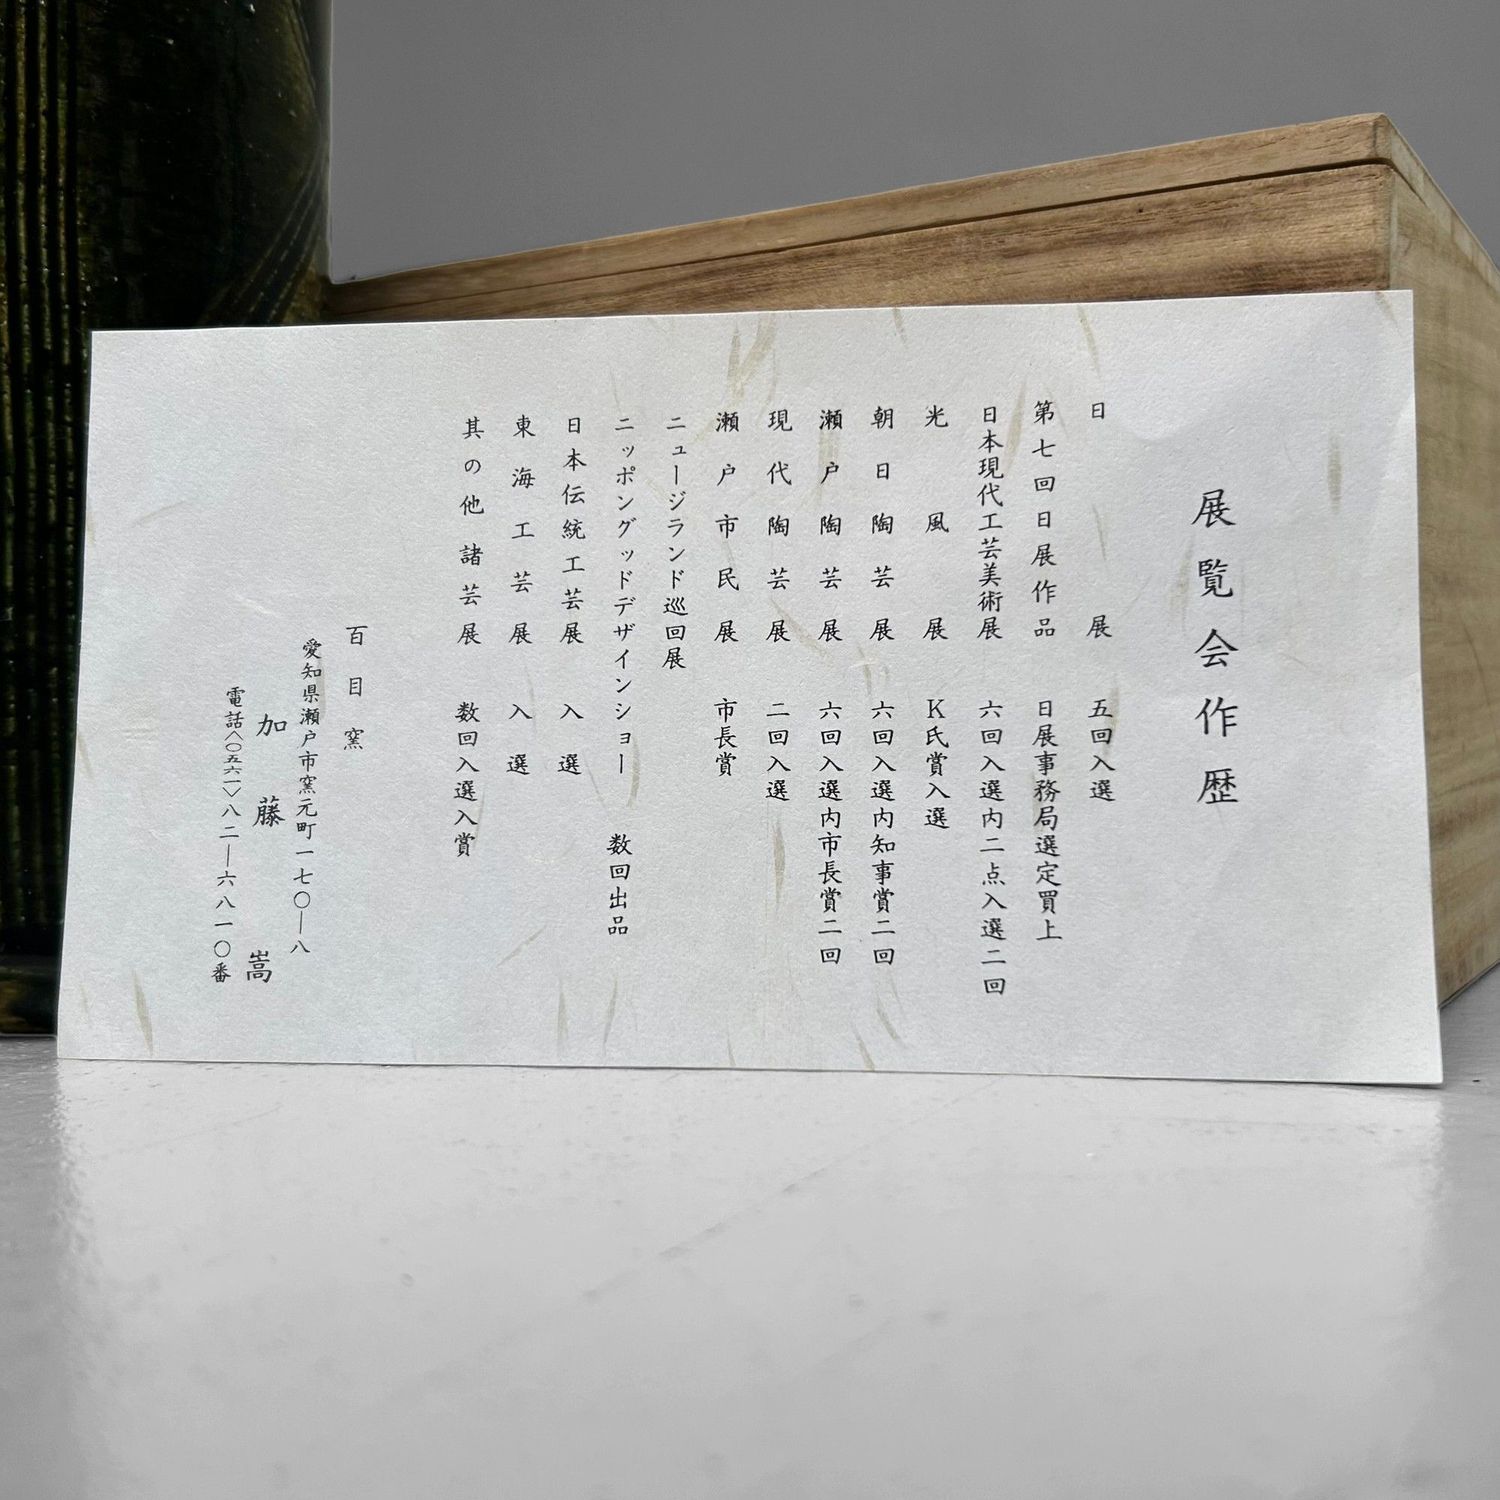 展覧会作歴
日展 五回入選
第七回日展作品 日展事務局選定買上
日本現代工芸美術展 六回入選内二点入選二回
光風展 K氏賞入選
朝日陶芸展 六回入選内知事賞二回
瀬戸陶芸展 六回入選内市長賞二回
現代陶芸展 二回入選
瀬戸市民展 市長賞
ニュージランド巡回展
ニッポングッドデザインショー 数回出品
日本伝統工芸展 入選
東海工芸展 入選
其の他諸芸展 数回入選入賞
百目窯
愛知県瀬戸市窯元町一七〇―八
加藤嵩
電話〈〇五六一〉八二―六八一〇番